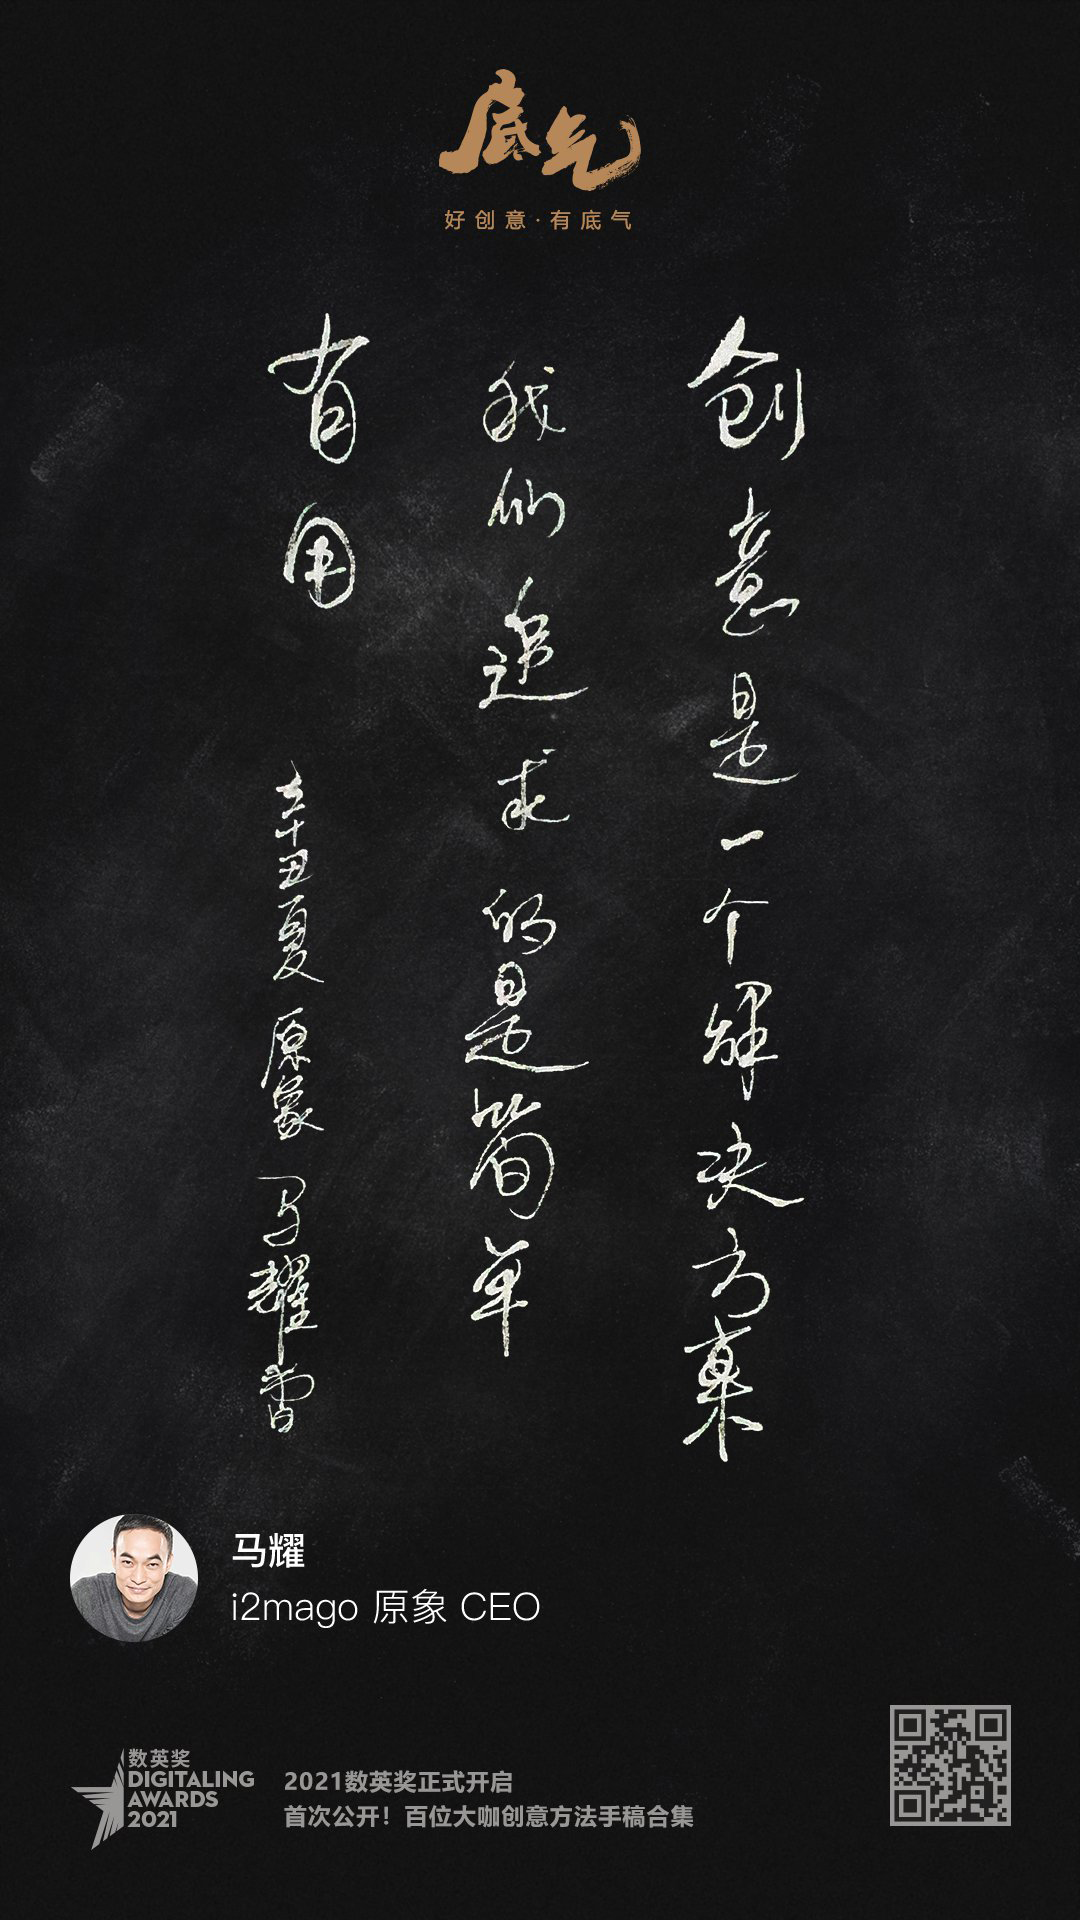 底气
好创意·有底气
创意是一个解决方案
我们追求的是简单
有用
辛丑夏 原象 马耀书
马耀
i2mago 原象 CEO
数英奖
DIGITALING
AWARDS
2021
2021数英奖正式开启
首次公开！百位大咖创意方法手稿合集